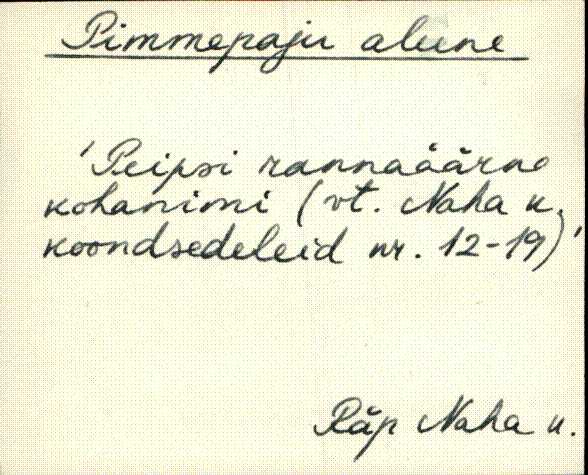 Pimmepaju alune
'Peipsi rannaäärne
kohanimi (vt. Naha k.
koondsedeleid nr. 12-19)'
Räp Naha k.